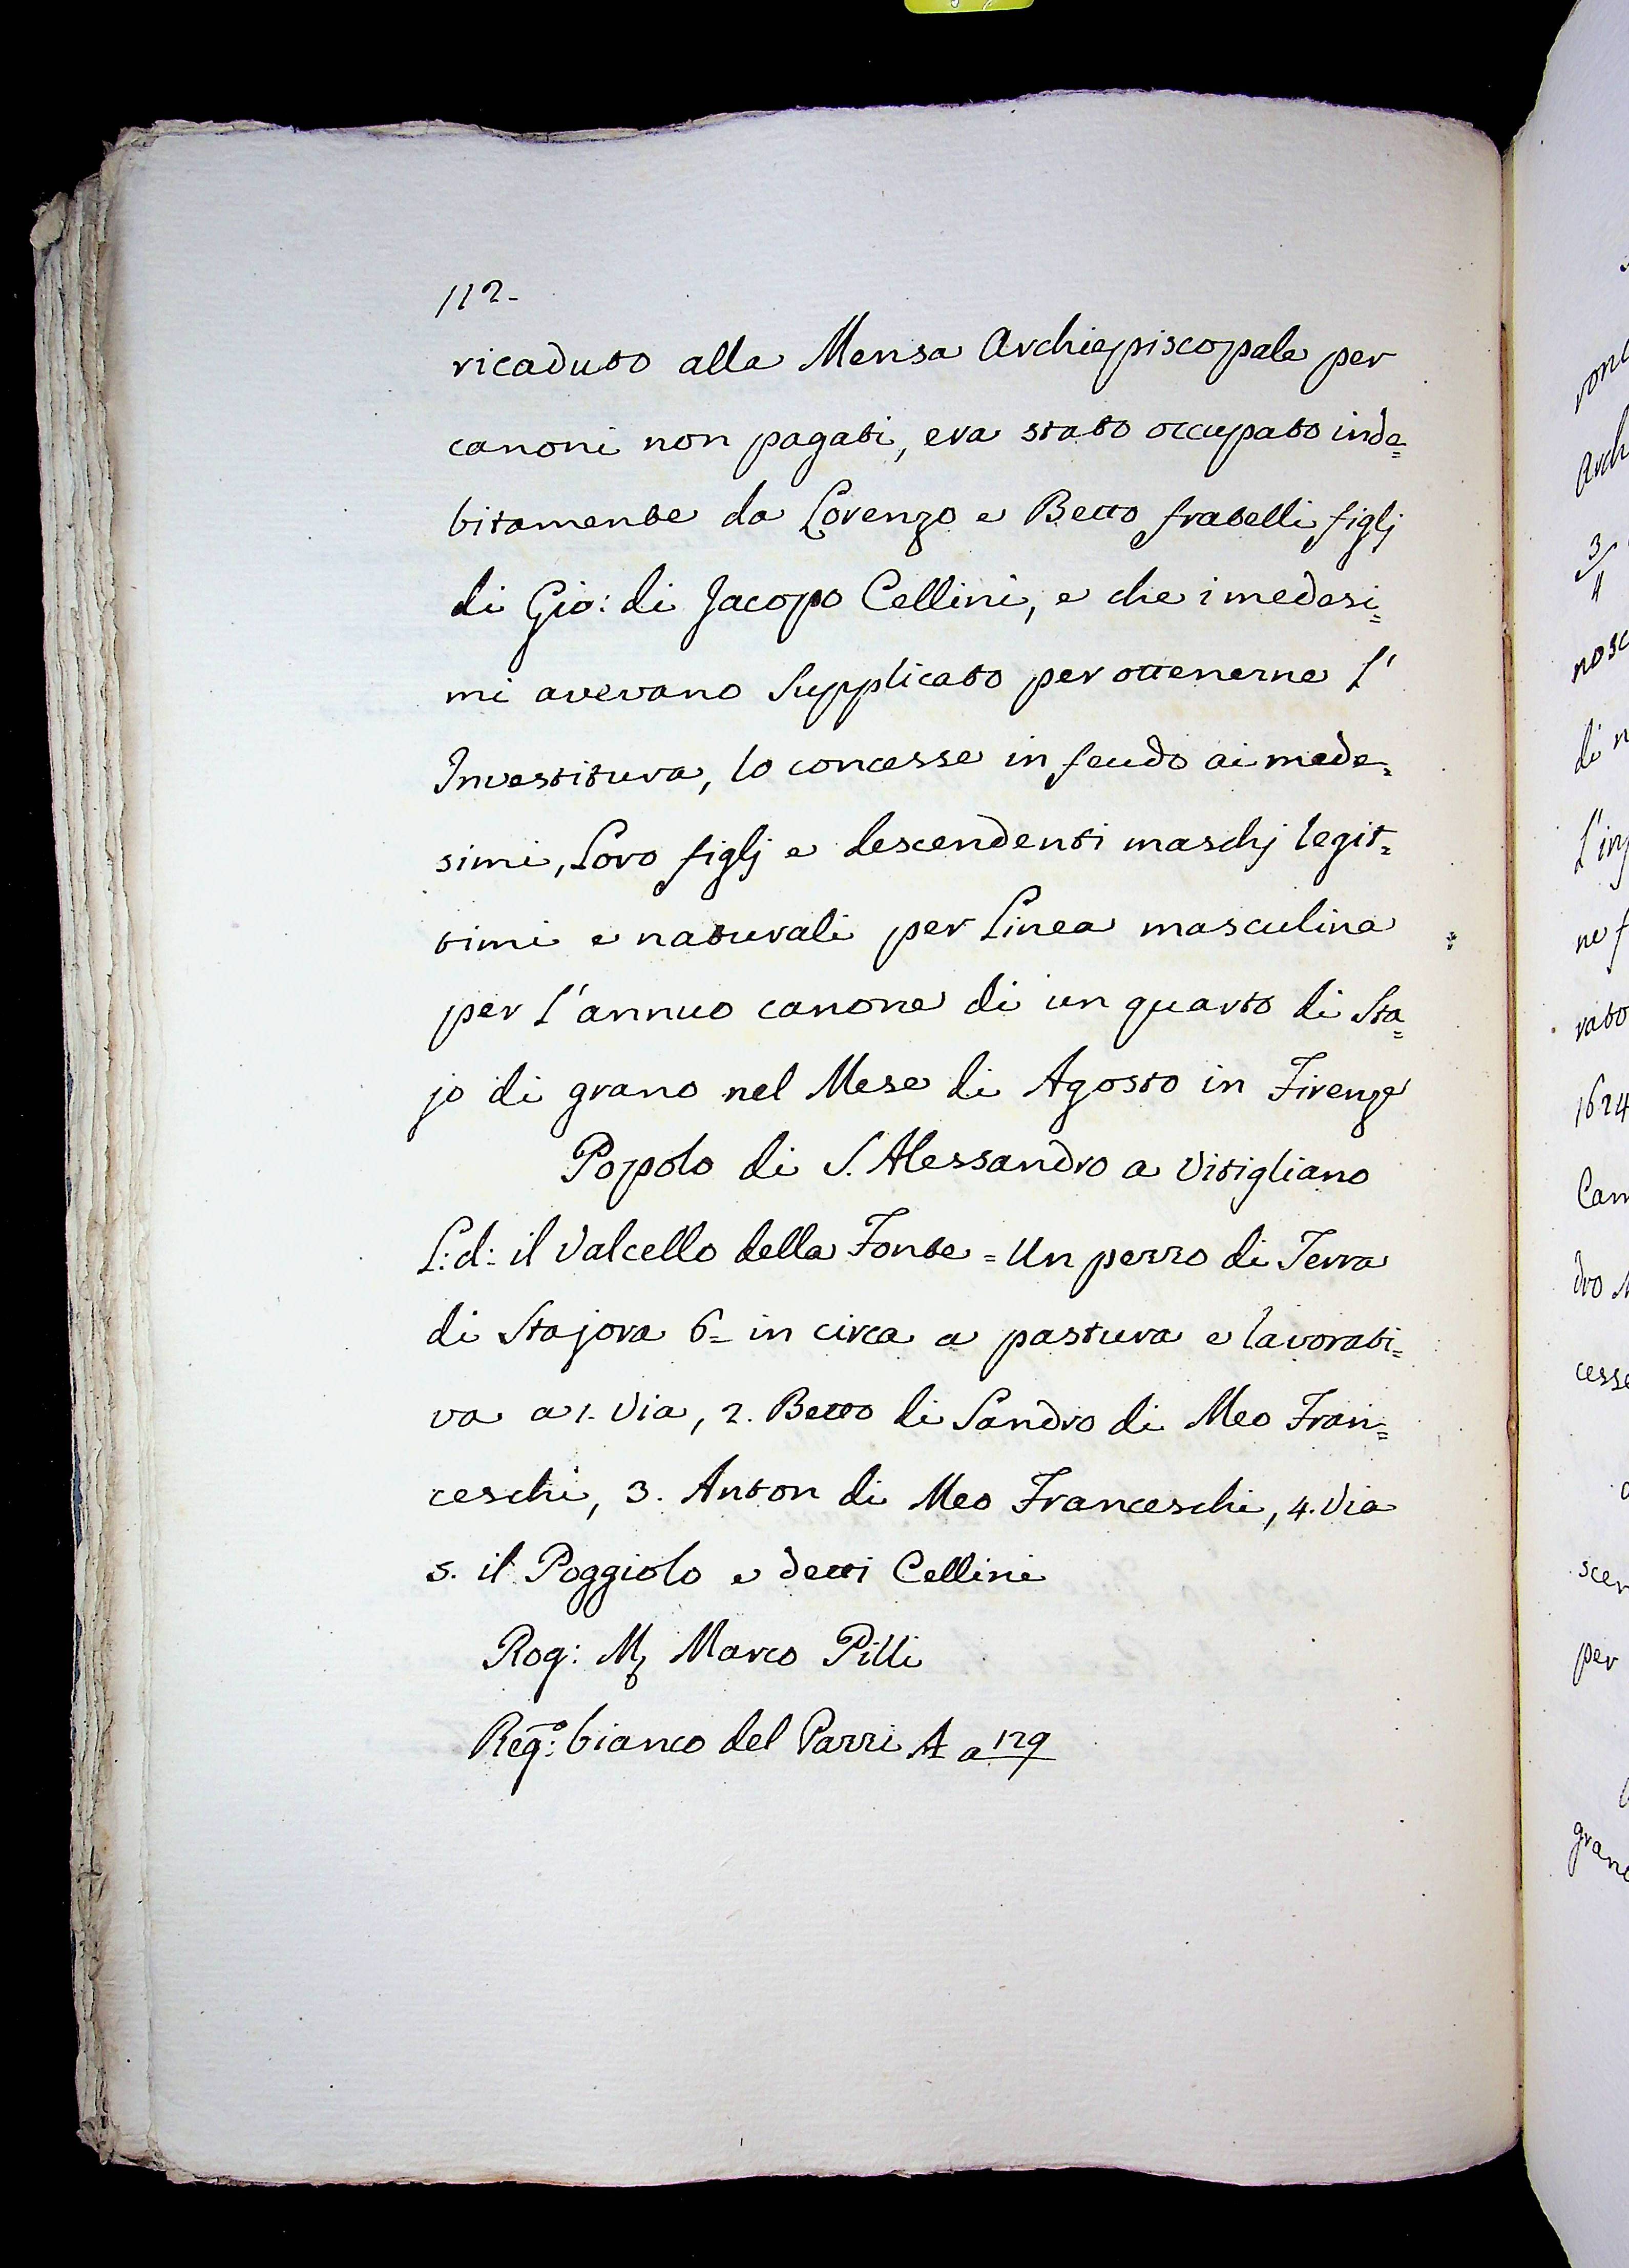 112.
ricaduto alla Mensa Archiepiscopale per
canoni non pagati, era stato occupato inde=
bitamente da Lorenzo e Betto fratelli figlj
di Gio: di Jacopo Cellini, e che i medesi=
mi avevano supplicato per ottenerne l'
Investitura, lo concesse in feudo ai mede=
simi, Loro figlj e descendenti maschj legit=
timi e naturali per Linea masculina
per l'annuo canone di un quarto di Sta=
jo di grano nel Mese di Agosto in Firenze
Popolo di S. Alessandro a Vitigliano
L: d: il Valcello della Fonte = Un pezzo di Terra
di Stajora 6= in circa a pastura e lavorati=
va a 1. Via, 2. Betto di Sandro di Meo Fran=
ceschi, 3. Anton di Meo Franceschi, 4. Via
5. il Poggiolo e detti Cellini
Rog: Mʒ Marco Pilli
Reg:º bianco del Pazzi A a 129